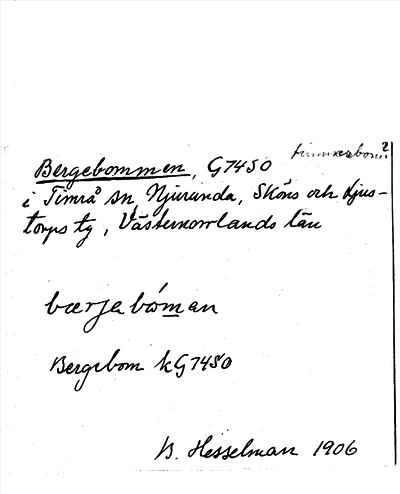 Bergebommen, G7450 timmerbom?
i Timrå sn, Njurunda, Sköns och Ljus-
torps tg, Västernorrlands län
bærjabóman
Bergebom kG7450
B. Hesselman 1906